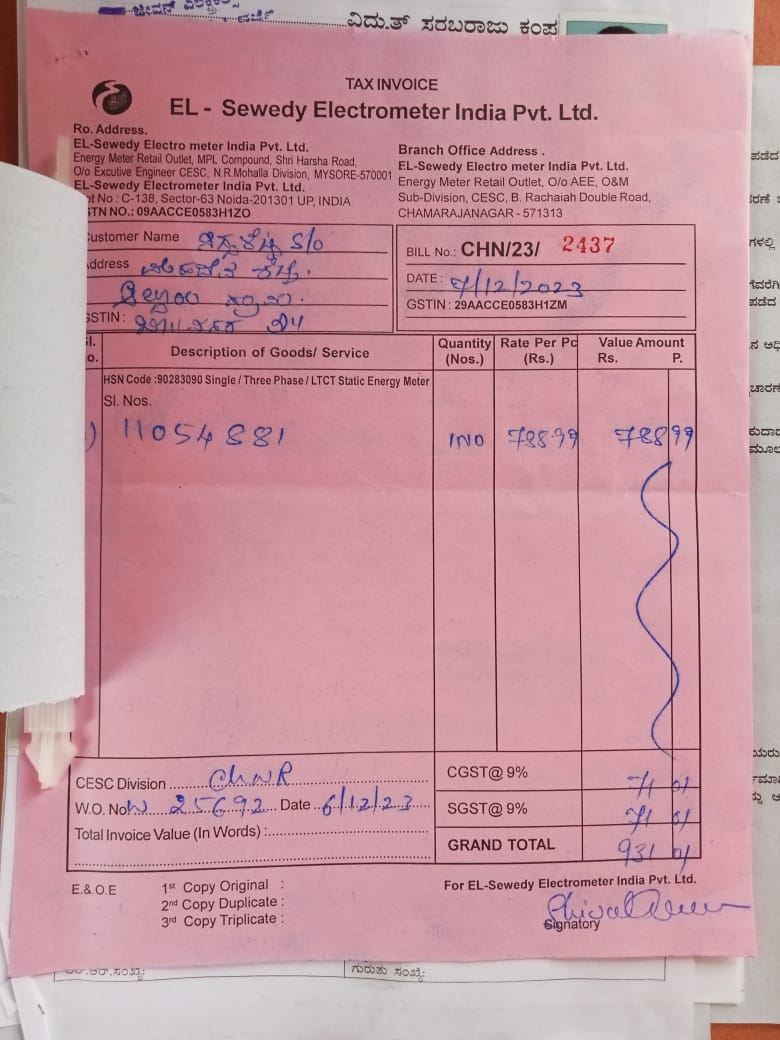 ವಿದ್ಯುತ್ ಸರಬರಾಜು ಕಂಪ
TAX INVOICE
EL - Sewedy Electrometer India Pvt. Ltd.
Ro. Address.
EL-Sewedy Electro meter India Pvt. Ltd.
Energy Meter Retail Outlet, MPL Compound, Shri Harsha Road,
O/o Excutive Engineer CESC, N.R.Mohalla Division, MYSORE-570001
EL-Sewedy Electrometer India Pvt. Ltd.
ot No : C-138, Sector-63 Noida-201301 UP, INDIA
STN NO.: 09AACCE0583H1ZO
Branch Office Address .
EL-Sewedy Electro meter India Pvt. Ltd.
Energy Meter Retail Outlet, O/o AEE, O&M
Sub-Division, CESC, B. Rachaiah Double Road,
CHAMARAJANAGAR - 571313
ustomer Name S/o
ddress
GSTIN :
BILL No.: CHN/23/ 2437
DATE : 7/12/2023
GSTIN : 29AACCE0583H1ZM
Sl. No. Description of Goods/ Service Quantity (Nos.) Rate Per Pc (Rs.) Value Amount Rs. P.
HSN Code :90283090 Single / Three Phase / LTCT Static Energy Meter
Sl. Nos.
) 11054881 1NO 788.99 788 99
CESC Division ChNR
W.O. No. W 25692 Date 6/12/23
Total Invoice Value (In Words) :
CGST@ 9% 71 01
SGST@ 9% 71 01
GRAND TOTAL 931 01
E.&.O.E
1st Copy Original :
2nd Copy Duplicate :
3rd Copy Triplicate :
For EL-Sewedy Electrometer India Pvt. Ltd.
Signatory
ಗುರುತು ಸಂಖ್ಯೆ: